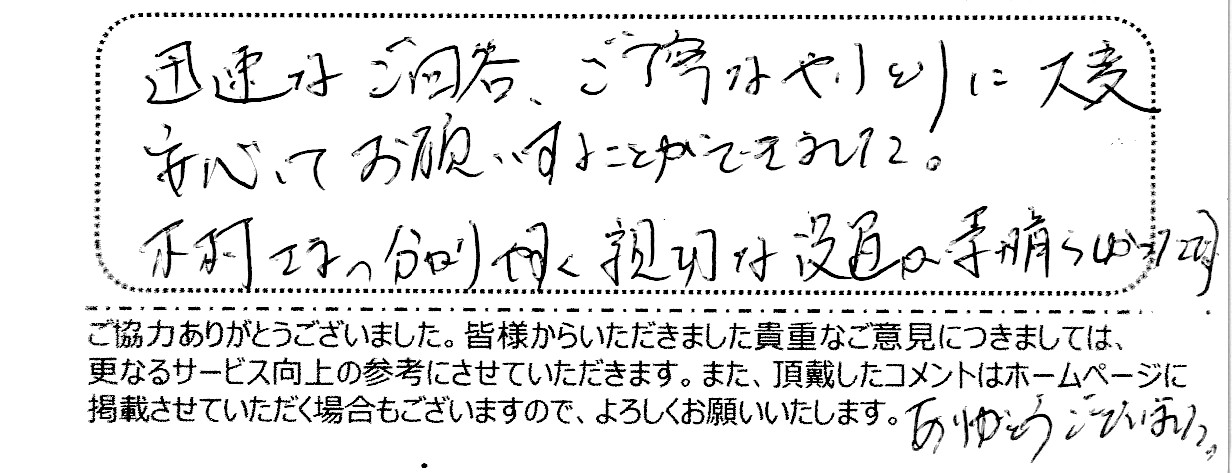 迅速なご回答、ご丁寧なやりとりに大変
安心してお願いすることができました。
木村さんの分かり易く親切な設置は素晴らしかったです
ご協力ありがとうございました。皆様からいただきました貴重なご意見につきましては、
更なるサービス向上の参考にさせていただきます。また、頂戴したコメントはホームページに
掲載させていただく場合もございますので、よろしくお願いいたします。
ありがとうございました。